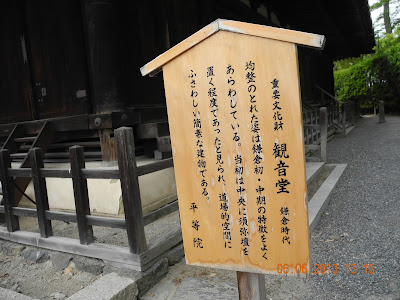 重要文化財 観音堂 鎌倉時代
均整のとれた姿は鎌倉初・中期の特徴をよく
あらわしている。当初は中央に須弥壇を
置く程度であったと見られ、道場的空間に
ふさわしい簡素な建物である。
平等院